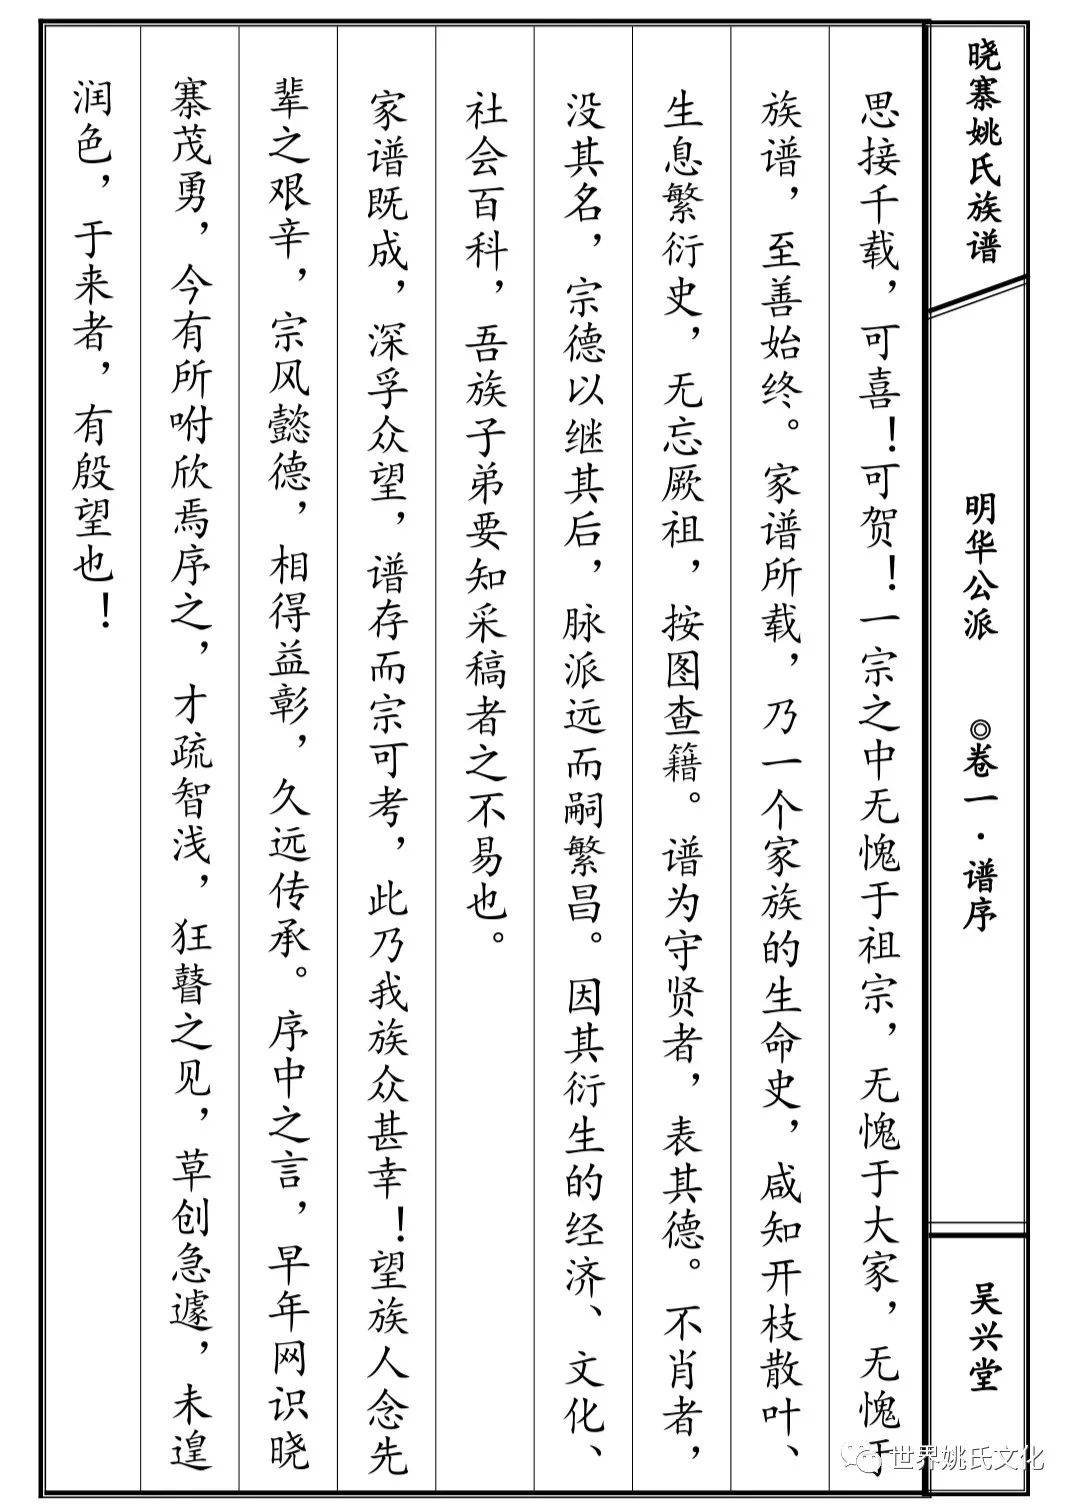 晓寨姚氏族谱
明华公派 ◎卷一·谱序
吴兴堂
思接千载，可喜！可贺！一宗之中无愧于祖宗，无愧于大家，无愧于
族谱，至善始终。家谱所载，乃一个家族的生命史，咸知开枝散叶、
生息繁衍史，无忘厥祖，按图查籍。谱为守贤者，表其德。不肖者，
没其名，宗德以继其后，脉派远而嗣繁昌。因其衍生的经济、文化、
社会百科，吾族子弟要知采稿者之不易也。
家谱既成，深孚众望，谱存而宗可考，此乃我族众甚幸！望族人念先
辈之艰辛，宗风懿德，相得益彰，久远传承。序中之言，早年网识晓
寨茂勇，今有所咐欣焉序之，才疏智浅，狂瞽之见，草创急遽，未遑
润色，于来者，有殷望也！
世界姚氏文化